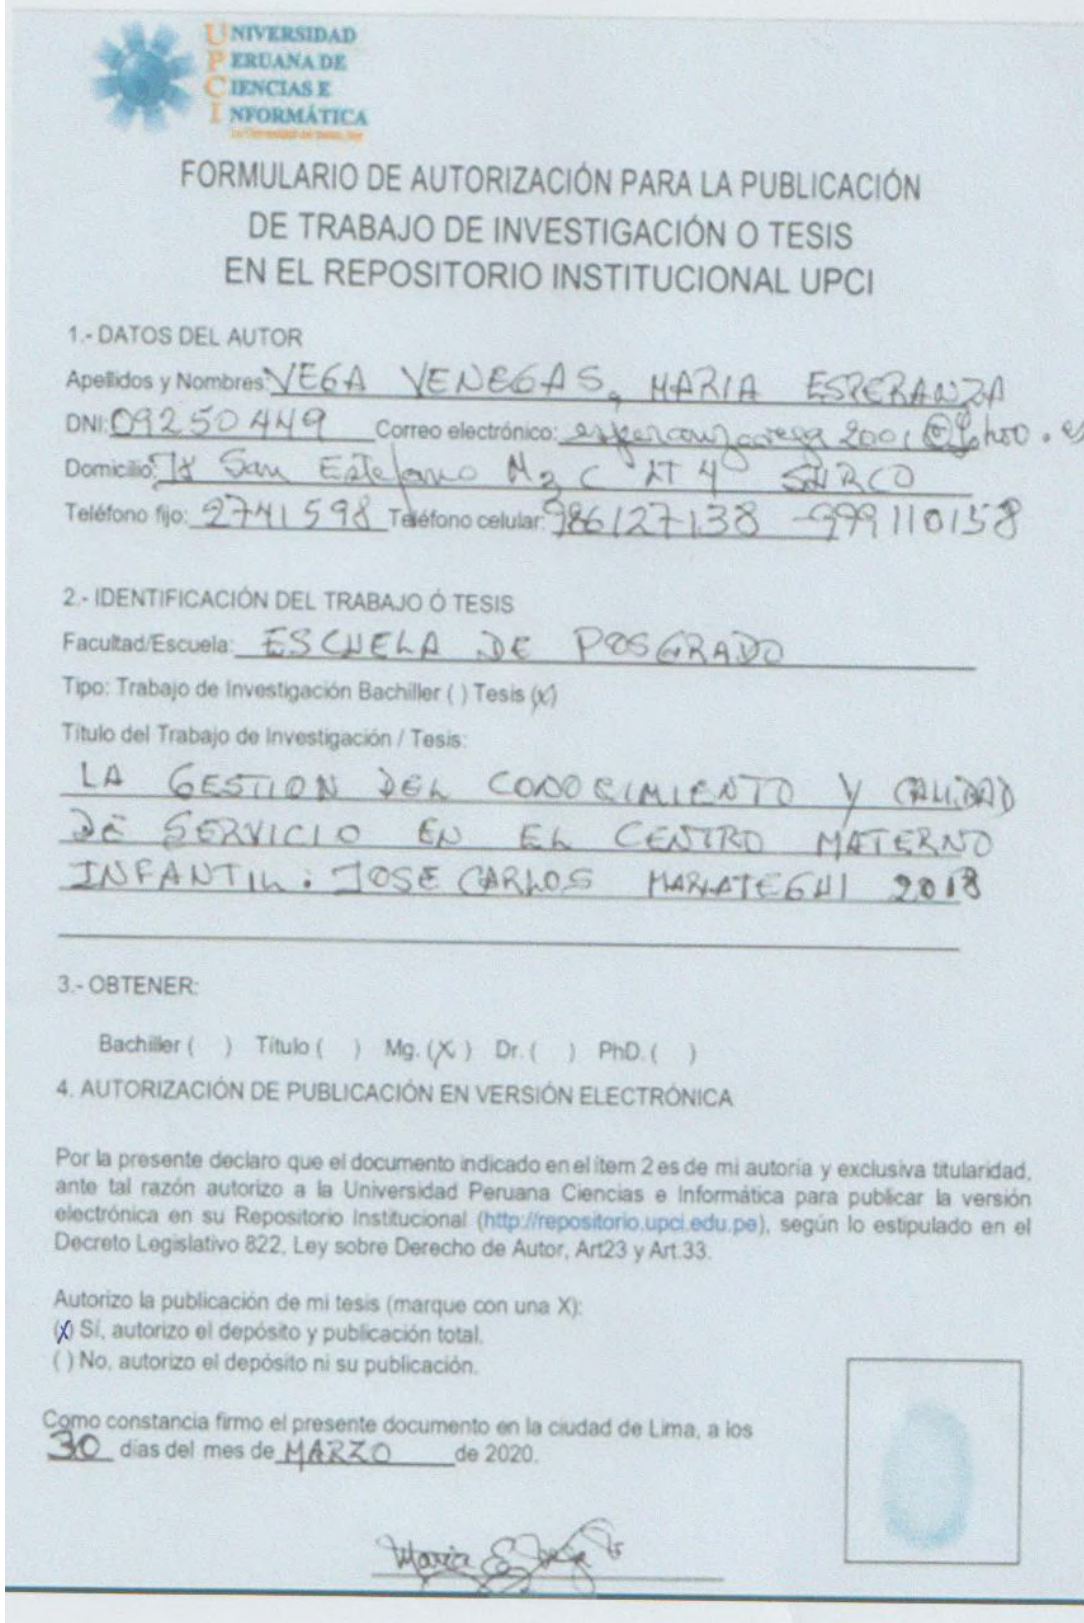 UNIVERSIDAD
PERUANA DE
CIENCIAS E
INFORMÁTICA
FORMULARIO DE AUTORIZACIÓN PARA LA PUBLICACIÓN
DE TRABAJO DE INVESTIGACIÓN O TESIS
EN EL REPOSITORIO INSTITUCIONAL UPCI
1.- DATOS DEL AUTOR
Apellidos y Nombres: VEGA VENEGAS, MARIA ESPERANZA
DNI: 09250449 Correo electrónico:
Domicilio: San Estefano Mz C LT 4 SURCO
Teléfono fijo: 2741598 Teléfono celular: 986127138 - 999110158
2.- IDENTIFICACIÓN DEL TRABAJO Ó TESIS
Facultad/Escuela: ESCUELA DE POSGRADO
Tipo: Trabajo de Investigación Bachiller ( ) Tesis (x)
Título del Trabajo de Investigación / Tesis:
LA GESTION DEL CONOCIMIENTO Y CALIDAD
DE SERVICIO EN EL CENTRO MATERNO
INFANTIL: JOSE CARLOS MARIATEGUI 2018
3.- OBTENER:
Bachiller ( ) Título ( ) Mg. (X) Dr. ( ) PhD. ( )
4. AUTORIZACIÓN DE PUBLICACIÓN EN VERSIÓN ELECTRÓNICA
Por la presente declaro que el documento indicado en el ítem 2 es de mi autoría y exclusiva titularidad,
ante tal razón autorizo a la Universidad Peruana Ciencias e Informática para publicar la versión
electrónica en su Repositorio Institucional (http://repositorio.upci.edu.pe), según lo estipulado en el
Decreto Legislativo 822, Ley sobre Derecho de Autor, Art23 y Art.33.
Autorizo la publicación de mi tesis (marque con una X):
(X) Sí, autorizo el depósito y publicación total.
( ) No, autorizo el depósito ni su publicación.
Como constancia firmo el presente documento en la ciudad de Lima, a los
30 días del mes de MARZO de 2020.
Maria E